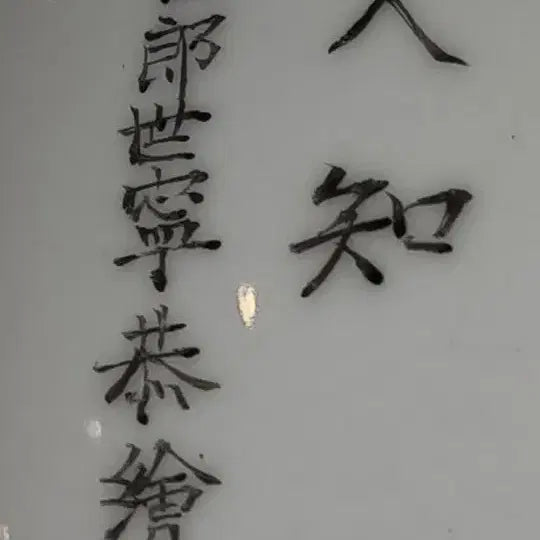 人知
郎世寧恭繪